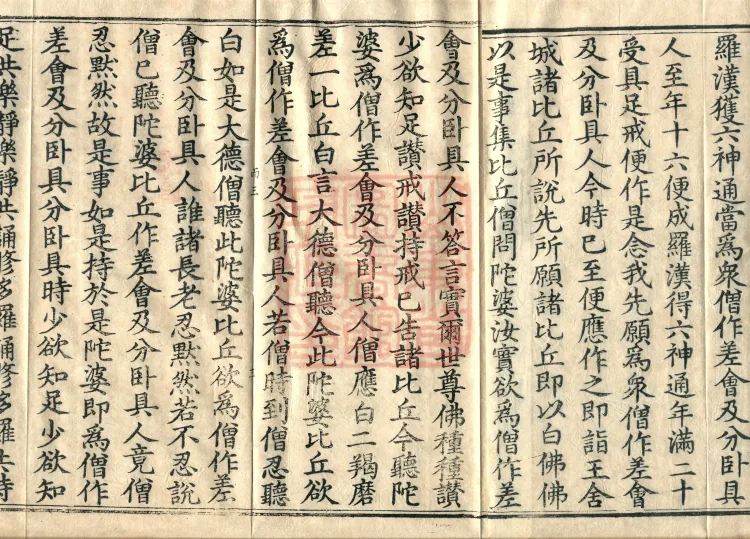 羅漢獲六神通當爲衆僧作差會及分卧具
人至年十六便成羅漢得六神通年滿二十
受具足戒便作是念我先願爲衆僧作差會
及分卧具人今時已至便應作之即詣王舍
城諸比丘所說先所願諸比丘即以白佛佛
以是事集比丘僧問陀婆汝實欲爲僧作差
會及分卧具人不答言實爾世尊佛種種讃
少欲知足讃戒讃持戒已告諸比丘今聽陀
婆爲僧作差會及分卧具人僧應白二羯磨
差一比丘白言大德僧聽今此陀婆比丘欲
爲僧作差會及分卧具人若僧時到僧忍聽
白如是大德僧聽此陀婆比丘欲爲僧作差
會及分卧具人誰諸長老忍黙然若不忍說
僧已聽陀婆比丘作差會及分卧具人竟僧
忍黙然故是事如是持於是陀婆即爲僧作
差會及分卧具時少欲知足少欲知
足共樂靜樂靜共誦修多羅誦修多羅共持